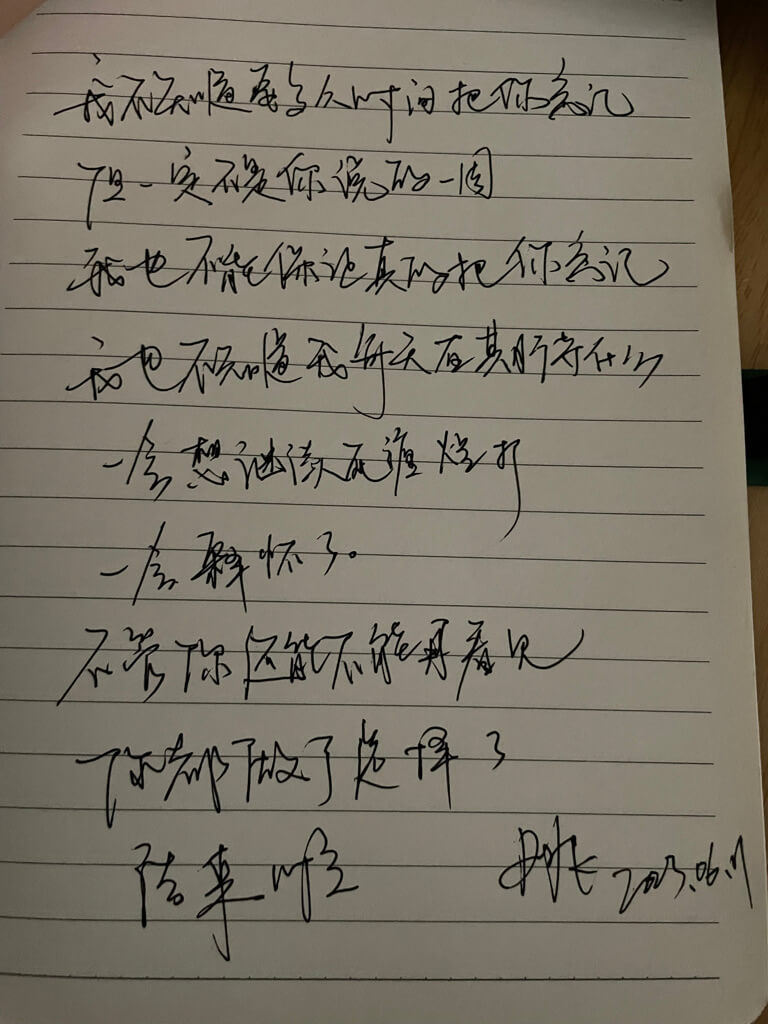 我不知道要多久时间把你忘记
但一定不是你说的一周
我也不能保证真的把你忘记
我也不知道我每天在期盼着什么
一会想继续死缠烂打
一会释怀了。
不管你还能不能再看见
你都做了选择了
2023.06.11